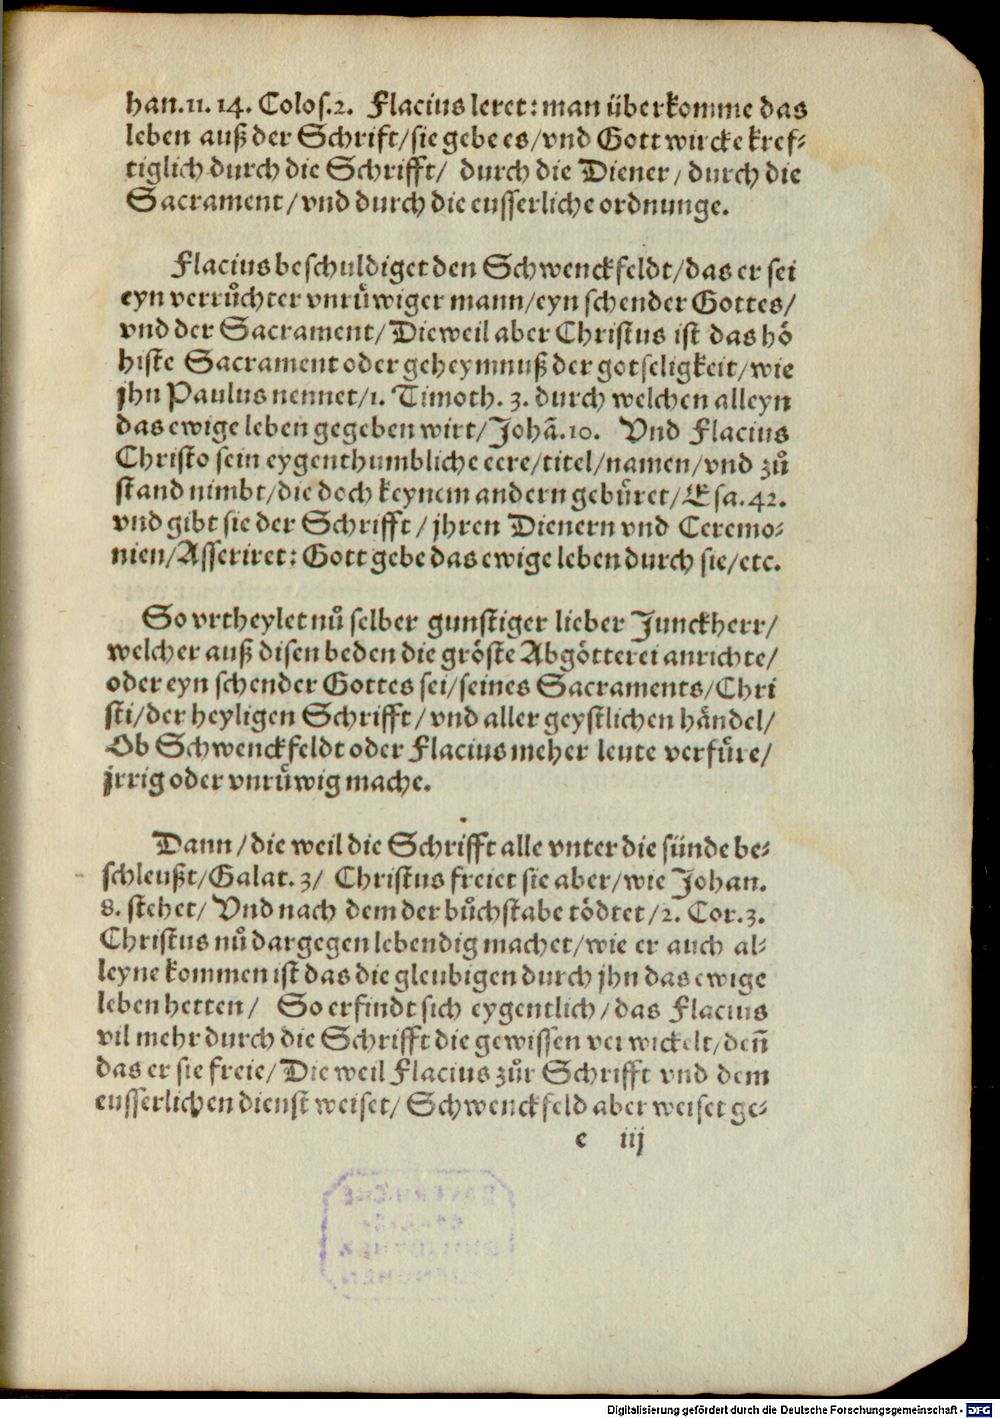 han.11. 14. Colos.2. Flacius leret: man überkomme das
leben auß der Schrift/ sie gebe es/ vnd Gott wircke kref-
tiglich durch die Schrifft/ durch die Diener/ durch die
Sacrament/ vnd durch die eusserliche ordnunge.
Flacius beschuldiget den Schwenckfeldt/ das er sei
eyn verrůchter vnrüwiger mann/ eyn schender Gottes/
vnd der Sacrament/ Dieweil aber Christus ist das hö
histe Sacrament oder geheymnuß der gotseligkeit/ wie
jhn Paulus nennet/ 1. Timoth. 3. durch welchen alleyn
das ewige leben gegeben wirt/ Johã.10. Vnd Flacius
Christo sein eygenthumbliche eere/ titel/ namen/ vnd zů
stand nimbt/ die doch keynem andern gebüret/ Esa. 42.
vnd gibt sie der Schrifft/ jhren Dienern vnd Ceremo-
nien/ Asseriret: Gott gebe das ewige leben durch sie/ etc.
So vrtheylet nů selber gunstiger lieber Junckherr/
welcher auß disen beden die gröste Abgötterei anrichte/
oder eyn schender Gottes sei/ seines Sacraments/ Chri
sti/ der heyligen Schrifft/ vnd aller geystlichen händel/
Ob Schwenckfeldt oder Flacius meher leute verfüre/
jrrig oder vnrüwig mache.
Dann/ die weil die Schrifft alle vnter die sünde be-
schleußt/ Galat. 3/ Christus freiet sie aber/ wie Johan.
8. stehet/ Vnd nach dem der bůchstabe tödtet/ 2. Cor.3.
Christus nů dargegen lebendig machet/ wie er auch al-
leyne kommen ist das die gleubigen durch jhn das ewige
leben hetten/ So erfindt sich eygentlich/ das Flacius
vil mehr durch die Schrifft die gewissen verwickelt/ deñ
das er sie freie/ Die weil Flacius zůr Schrifft vnd dem
eusserlichen dienst weiset/ Schwenckfeld aber weiset ge-
e iij
Digitalisierung gefördert durch die Deutsche Forschungsgemeinschaft - DFG